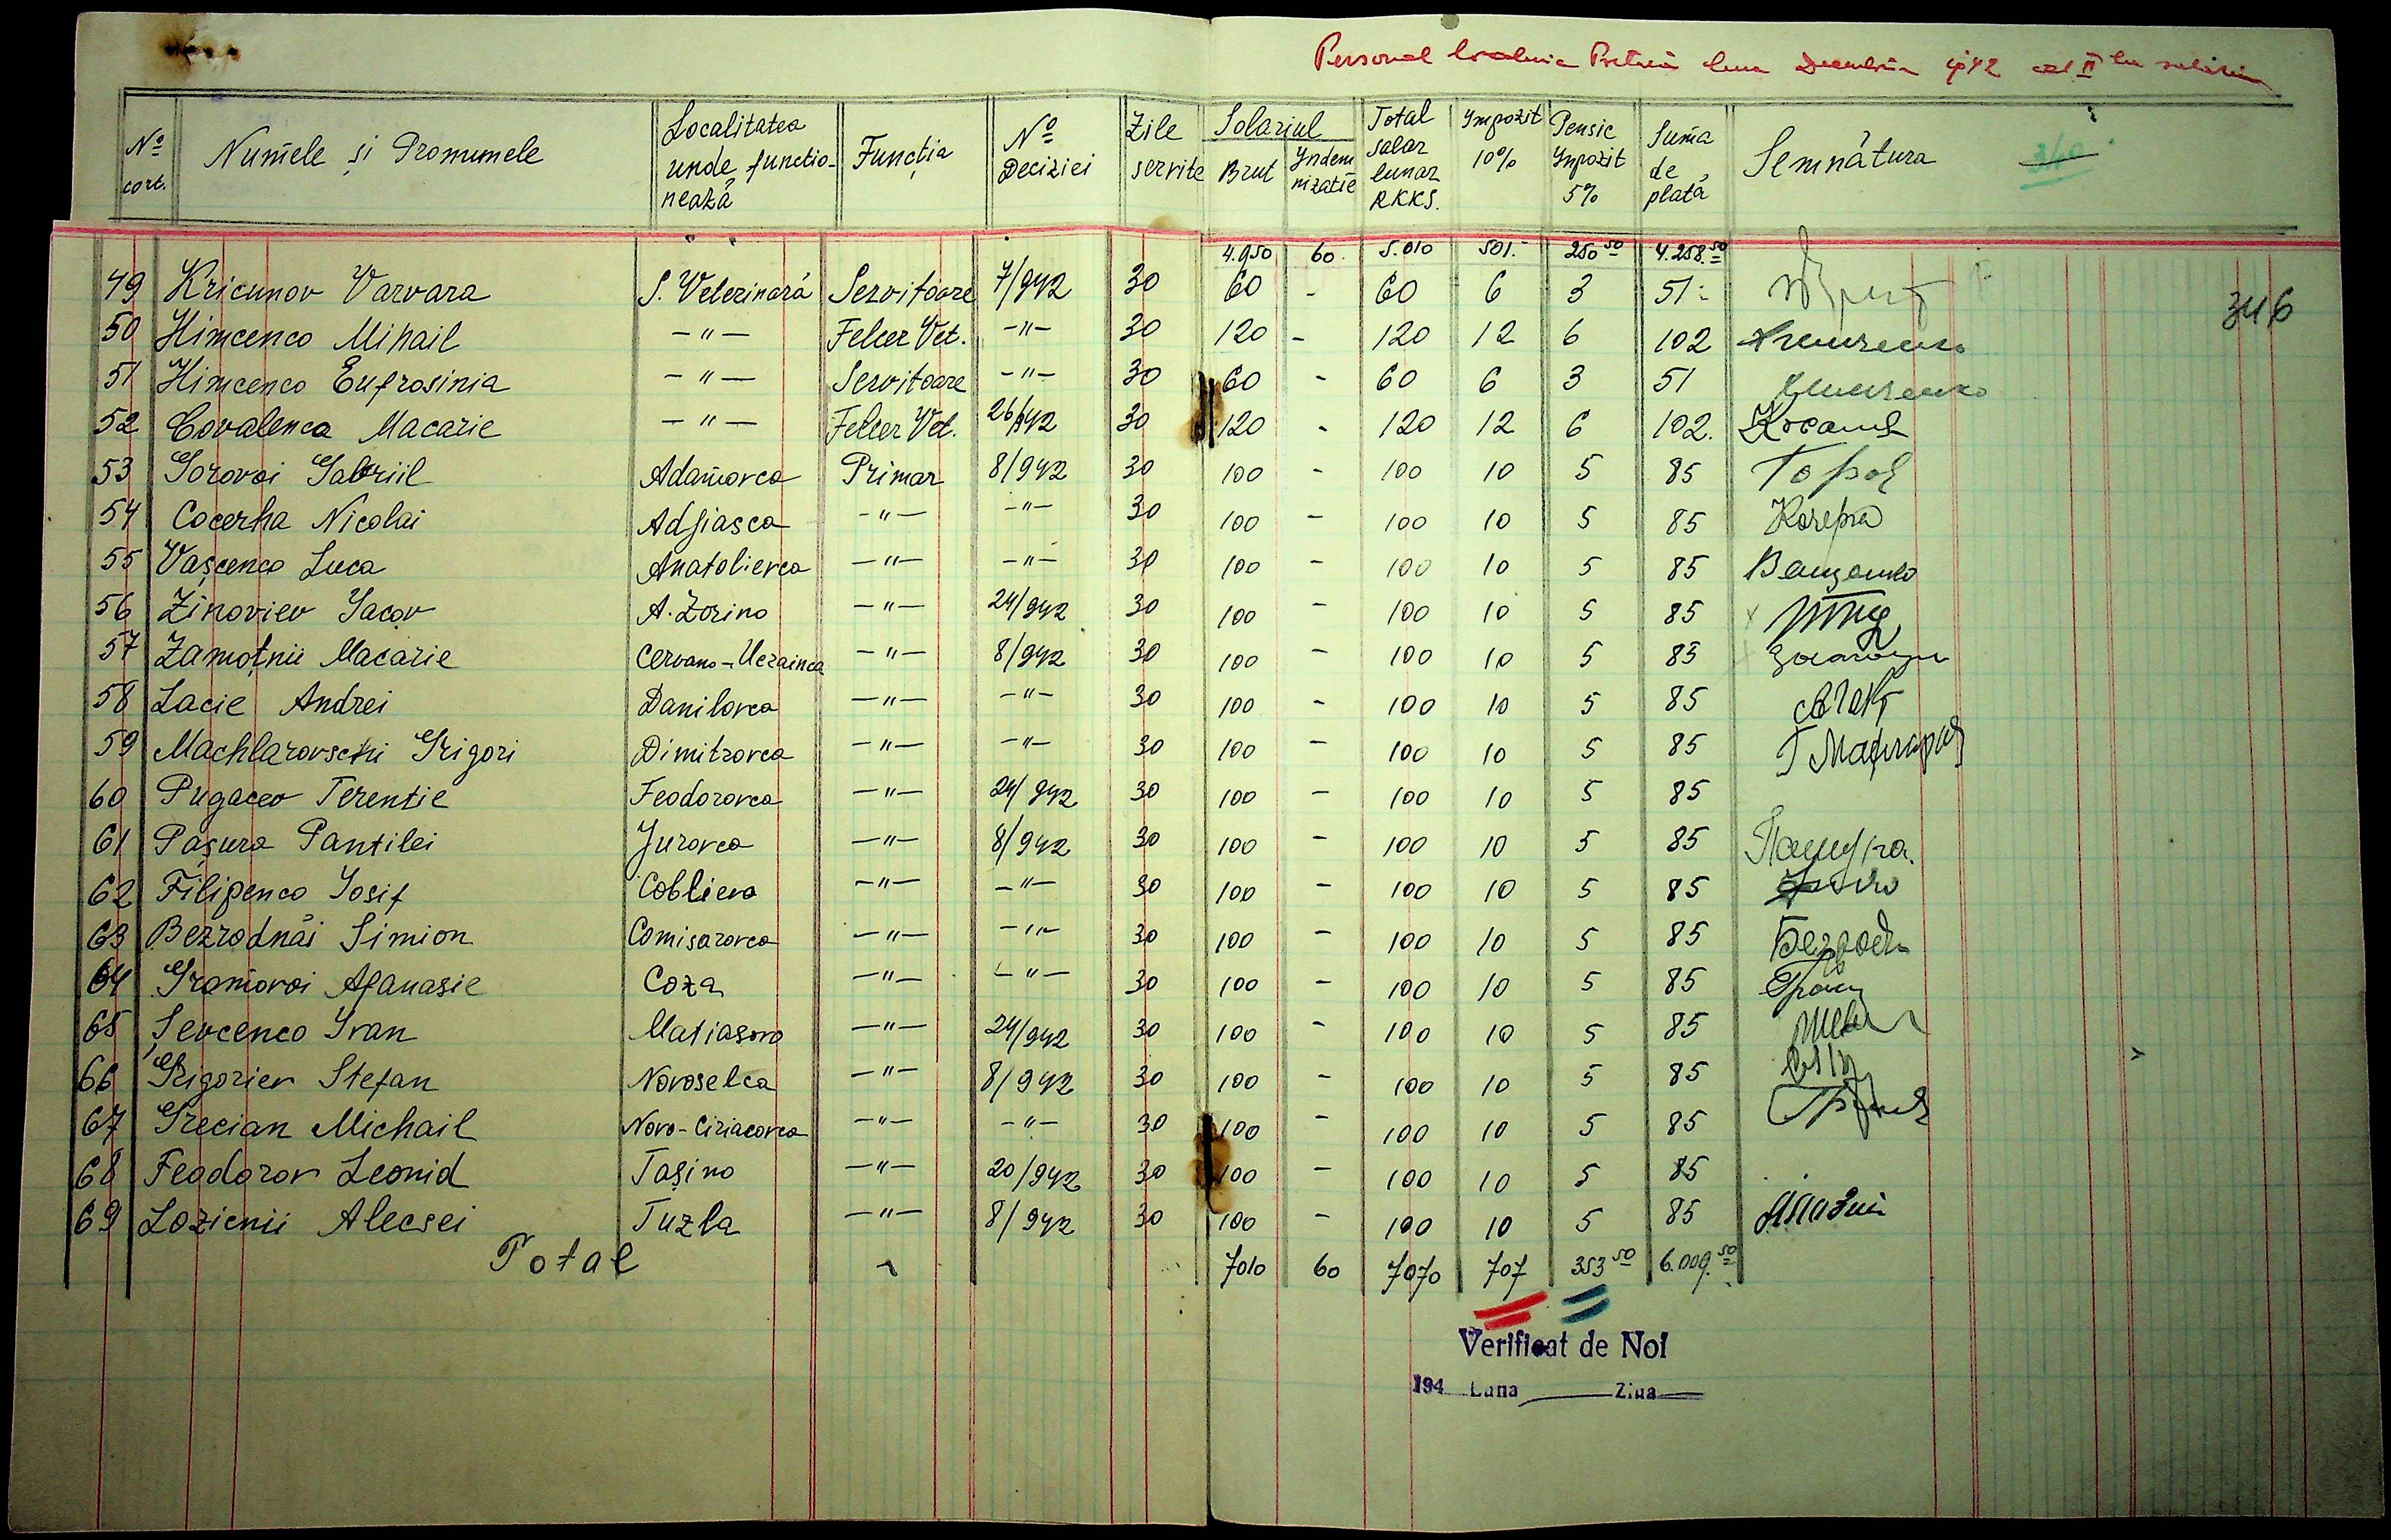 Personal Decembrie 1942 al II lea
No cort. Numele și Pronumele Localitatea unde functionează Funcția No Deciziei Zile servite Solariul Brut Yndemnizatie Total salar lunar RKKS. Ympozit 10% Pensie Ympozit 5% Suma de plată Semnătura
340
4.950 60. 5.010 501.- 250 50 4.258.50
49 Kricunov Varvara S. Veterinară Servitoare 7/942 30 60 - 60 6 3 51.-
346
50 Himcenco Mihail -"- Felcer Vet. -"- 30 120 - 120 12 6 102
51 Himcenco Eufrosinia -"- Servitoare -"- 30 60 - 60 6 3 51
52 Covalenco Macarie -"- Felcer Vet. 26/942 30 120 - 120 12 6 102.
53 Gorovoi Gabriil Adamovca Primar 8/942 30 100 - 100 10 5 85
54 Cocerha Nicolai Adjiasca -"- -"- 30 100 - 100 10 5 85
55 Vașcenco Luca Anatolievca -"- -"- 30 100 - 100 10 5 85 Ващенко
56 Zinoviev Iacov A. Zorino -"- 24/942 30 100 - 100 10 5 85
57 Zamoțnii Macarie Cervano-Ucrainca -"- 8/942 30 100 - 100 10 5 85
58 Lacie Andrei Danilovca -"- -"- 30 100 - 100 10 5 85
59 Machlarovschi Grigori Dimitrovca -"- -"- 30 100 - 100 10 5 85
60 Pugacev Terentie Feodorovca -"- 24/942 30 100 - 100 10 5 85
61 Pașura Pantilei Jurovca -"- 8/942 30 100 - 100 10 5 85 Пашура.
62 Filipenco Iosif Coblievo -"- -"- 30 100 - 100 10 5 85
63 Bezrodnăi Simion Comisarovca -"- -"- 30 100 - 100 10 5 85
64 Gramovoi Afanasie Coza -"- -"- 30 100 - 100 10 5 85
65 Șevcenco Ivan Matiasovo -"- 24/942 30 100 - 100 10 5 85
66 Grigoriev Stefan Novoselca -"- 8/942 30 100 - 100 10 5 85
67 Grecian Michail Novo-Ciriacovca -"- -"- 30 100 - 100 10 5 85
68 Feodorov Leonid Tașino -"- 20/942 30 100 - 100 10 5 85
69 Lozienii Alecsei Tuzla -"- 8/942 30 100 - 100 10 5 85
Total 7010 60 7070 707 353 50 6.009.50
Verificat de Noi
194 Luna Ziua